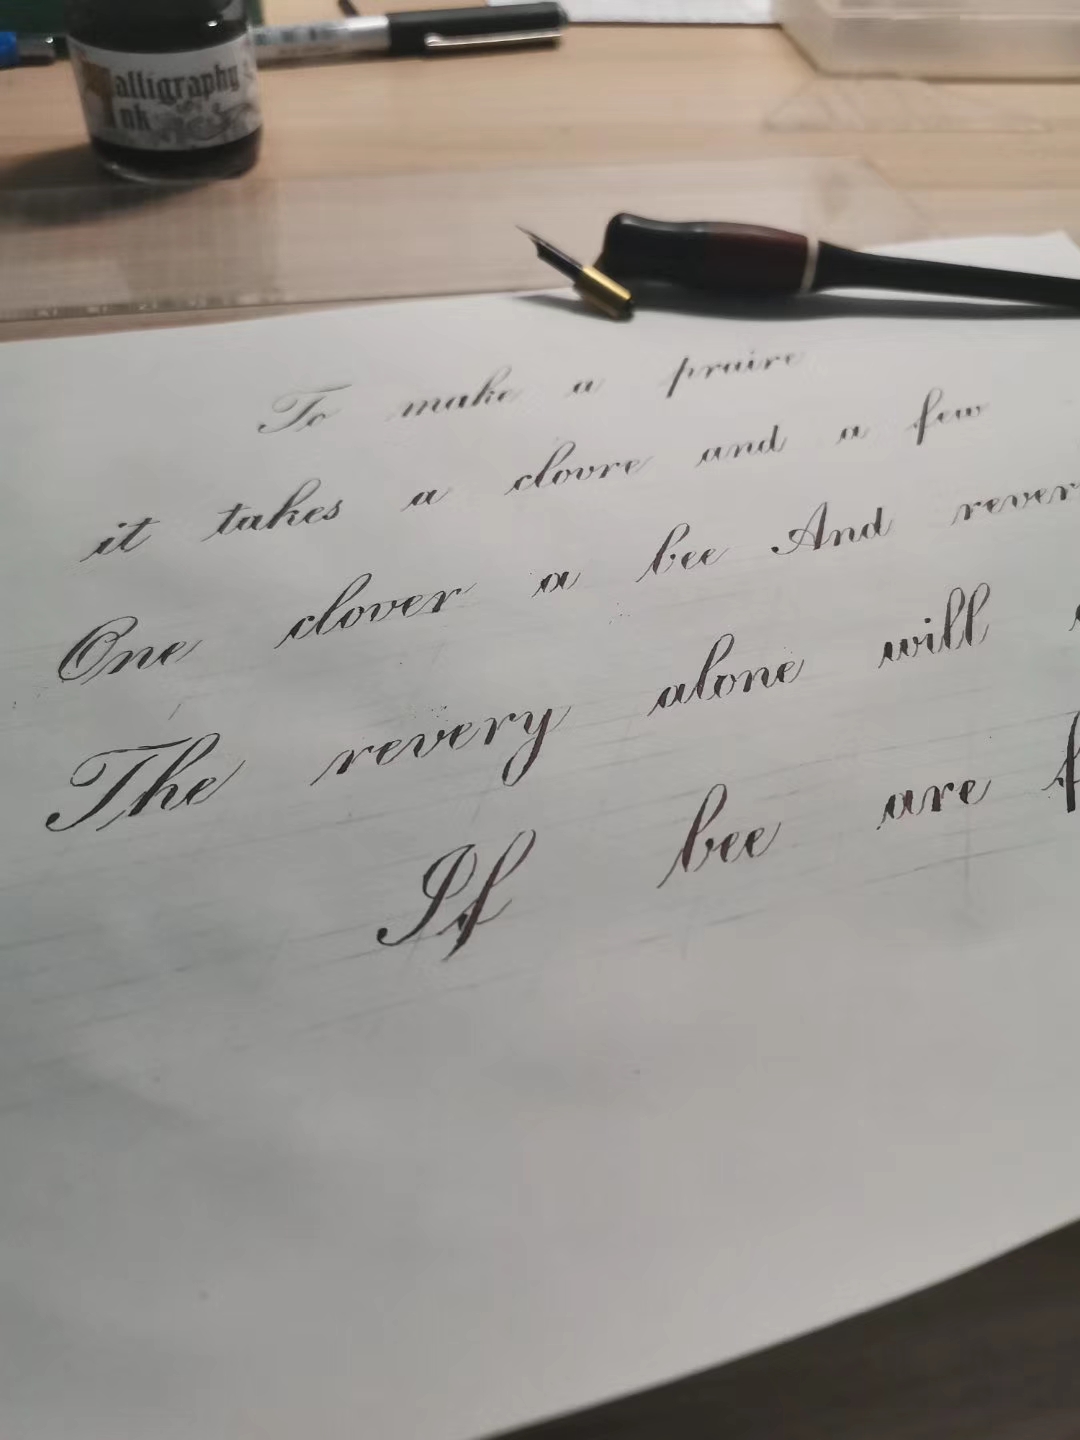 Calligraphy
Ink
To make a praire
it takes a clovre and a few
One clover a bee And rever
The revery alone will
If bee are f